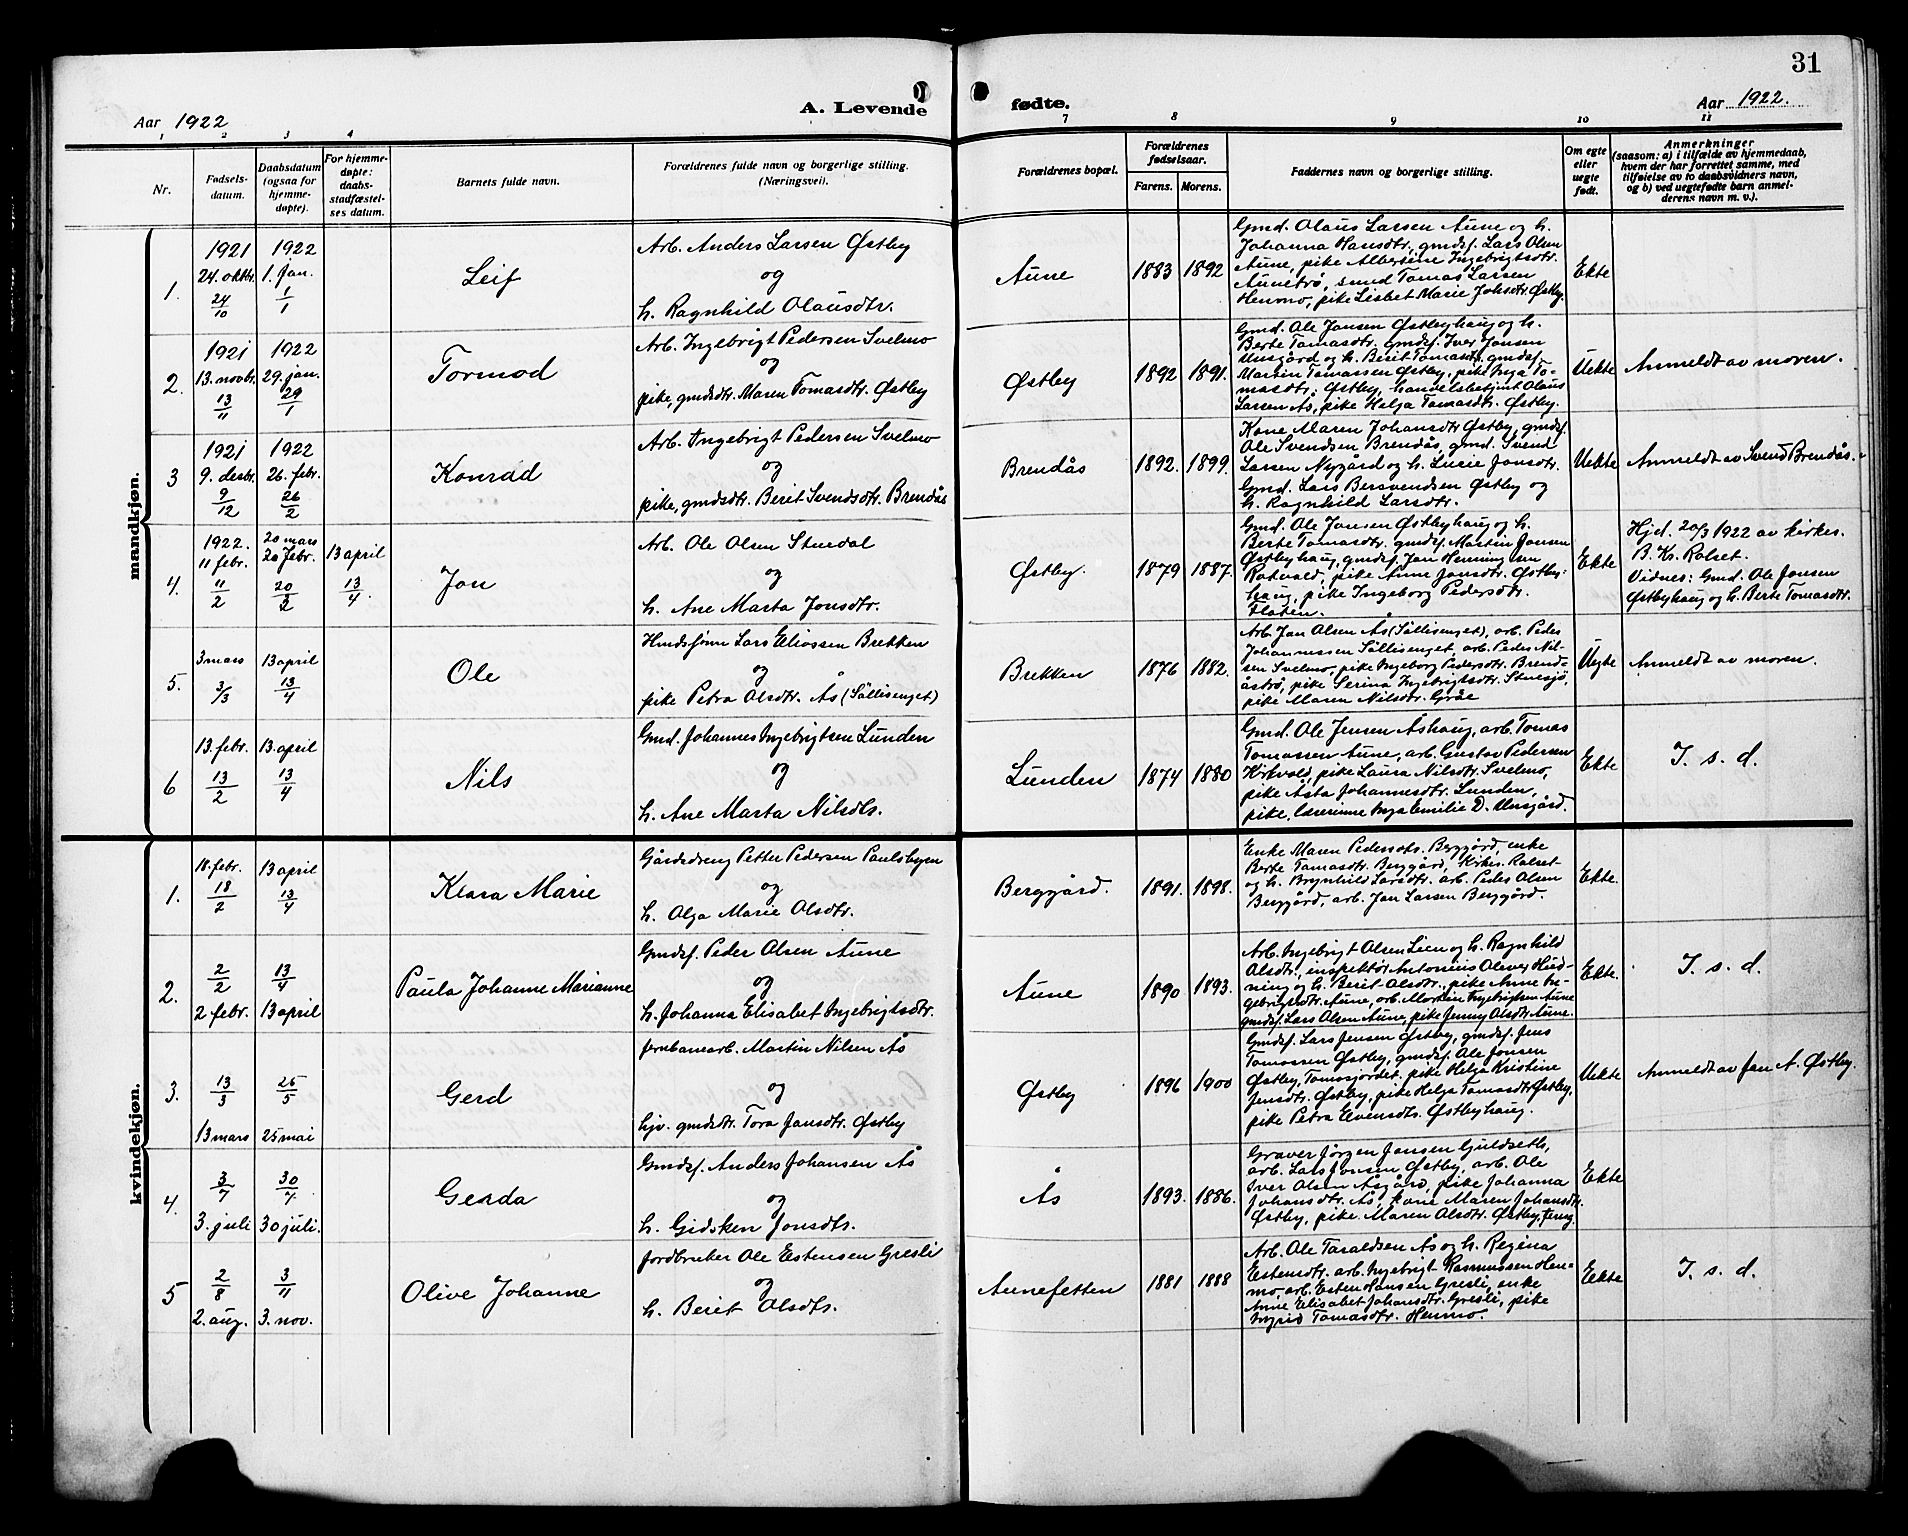 31
A. Levende fødte.
Aar 1922
Aar 1922.
1 2 3 4 7 8 9 10 11
Nr.
Fødsels-
datum.
Daabsdatum
(ogsaa for
hjemme-
døpte).
For hjemme-
døpte:
daabs-
stadfæstel-
ses datum.
Barnets fulde navn.
Forældrenes fulde navn og borgerlige stilling.
(Næringsvei).
Forældrenes bopæl.
Forældrenes
fødselsaar.
Farens. Morens.
Faddernes navn og borgerlige stilling.
Om egte
eller
uegte
født.
Anmerkninger
(saasom: a) i tilfælde av hjemmedaab,
hvem der har forrettet samme, med
tilføielse av to daabsvidners navn,
og b) ved uegtefødte barn anmel-
derens navn m. v.).
mandkjøn.
1.
1921
24. oktbr.
24/10
1922
1. jan.
1/1
Leif
Arb. Anders Larsen Østby
og
h. Ragnhild Olausdtr.
Aune
1883 1892
Gmd. Olaus Larsen Aune og h.
Johanna Hansdtr., gmdsf. Lars Olsen
Aune, pike Albertine Ingebrigtsdtr.
Aunetrø, smed Tomas Larsen
Henmo, pike Lisbet Marie Johsdtr. Østby.
Ekte
2.
1921
13. novbr.
13/11
1922
29. jan.
29/1
Tormod
Arb. Ingebrigt Pedersen Svelmo
og
pike, gmdsdtr. Maren Tomasdtr. Østby
Østby
1892 1891.
Gmd. Ole Jonsen Østbyhaug og h.
Berte Tomasdtr. gmdsf. Iver Jonsen
Unsgård og h. Berit Tomasdtr. gmdsf.
Martin Tomassen Østby, pike Inga To-
masdtr. Østby, handelsbetjent Olaus
Larsen Ås, pike Helga Tomasdtr. Østby.
Uekte
Anmeldt av moren.
3
1921
9. desbr.
9/12
1922
26. febr.
26/2
Konrad
Arb. Ingebrigt Pedersen Svelmo
og
pike, gmdsdtr. Berit Svendsdtr. Brendås
Brendås
1892. 1899.
Kone Maren Johansdtr Østby, gmdsf.
Ole Svendsen Brendås, gmd. Svend
Larsen Nygård og h. Lucie Jonsdtr.
Gmd. Lars Bersvendsen Østby og
h. Ragnhild Larsdtr.
Uekte
Anmeldt av Svend Brendås.
4.
1922.
11 febr.
11/2
20 mars
20 febr.
20/3
13 april
13/4.
Jon
Arb. Ole Olsen Stuedal
og
h. Ane Marta Jonsdtr.
Østby.
1879 1887.
Gmd. Ole Jonsen Østbyhaug og h.
Berte Tomasdtr. gmdsf. Martin Jonsen
Østbyhaug, gmdsf. Jon Henningsen
Rotvold, pike Anne Jonsdtr. Østby-
haug, pike Ingeborg Pedersdtr.
Flaten.
Ekte
Hjd. 20/3 1922 av kirkes.
B. Kr. Rolset.
Vidnes: Gmd. Ole Jonsen
Østbyhaug og h. Berte Tomasdtr.
5.
3 mars
3/3
13 april
13/4
Ole
Hmdssønn Lars Eliassen Brekken
og
pike Petra Olsdtr. Ås (Sällisenget)
Brekken
1876 1882.
Arb. Jon Olsen Ås (Sällisenget), arb. Peder
Johannessen Sällisenget, arb. Peder Nil-
sen Svelmo, pike Ingeborg Pedersdtr. Brend-
åstrø, pike Serina Ingebrigtsdtr. Stuesjø,
pike Maren Nilsdtr. Gråe
Uegte
Anmeldt av moren.
6
13. febr.
13/2
13. april
13/4
Nils
Gmd. Johannes Ingebrigtsen Lunden
og
h. Ane Marta Nilsdtr.
Lunden
1874 1880
Gmd. Ole Jensen Åshaug, arb. Tomas
Tomassen Aune, arb. Gustav Pedersen
Kirkvold, pike Laura Nilsdtr. Svelmo,
pike Asta Johannesdtr. Lunden,
pike, lærerinne Inga Emilie D. Unsgård.
Ekte
I. s. d.
kvindekjøn.
1.
18. febr.
18/2
13 april
13/4
Klara Marie
Gårdsdreng Petter Pedersen Paulsbyen
og
h. Olga Marie Olsdtr.
Berggård.
1891. 1898.
Enke Maren Pedersdtr. Berggård, enke
Berte Tomasdtr. Berggård, Kirkes. Rolset
og h. Brynhild Larsdtr. arb. Peder Olsen
Berggård, arb. Jon Larsen Berggård.
Ekte.
2.
2/2
2 febr.
13/4
13 april
Paula Johanne Marianne
Gmdsf. Peder Olsen Aune
og
h. Johanna Elisabet Ingebrigtsdtr.
Aune
1890 1893.
Arb. Ingebrigt Olsen Lien og h. Ragnhild
Olsdtr., inspektør Antonius Oliver Hud-
ning og h. Berit Olsdtr. pike Anne In-
gebrigtsdtr. Aune, arb. Martin Ingebrigtsen Aune
gmdsf. Lars Olsen Aune, pike Jenny Olsdtr. Aune.
Ekte.
I. s. d.
3.
13/3
13 mars
25/5
25 mai
Gerd
Jernbanearb. Martin Nilsen Ås
og
hjv. gmdsdtr. Tora Jonsdtr. Østby
Østby
1896 1900
Gmdsf. Lars Jensen Østby, gmdsf. Jens
Tomassen Østby, gmdsf. Ole Jonsen
Østby, Tomasjordet, pike Helga Kristine
Jensdtr. Østby, pike Helga Tomasdtr Østby,
pike Petra Evensdtr. Østbyhaug.
Uekte
Anmeldt av Jon A. Østby.
4.
3/7
3. juli
30/7
30 juli.
Gerda
Gmdsf. Anders Johansen Ås
og
h. Gidsken Jonsdtr.
Ås
1893. 1886.
Graver Jørgen Jonsen Guldseth,
arb. Lars Jonsen Østby, arb. Ole
Iver Olsen Åsgård, pike Johanna
Johansdtr. Ås, kone Maren Johansdtr.
Østby, pike Maren Olsdtr. Østby,
Ekte
5
2/8
2. aug.
3/11
3. nov.
Olive Johanne
Jordbruker Ole Estensen Gresli
og
h. Berit Olsdtr.
Aunefetten
1881 1888
Arb. Ole Taraldsen Ås og h. Regina
Estensdtr. arb. Ingebrigt Rasmussen Hen-
mo, arb. Esten Hansen Gresli, enke
Anne Elisabet Johansdtr. Gresli, pike
Ingrid Tomasdtr. Henmo.
Eekte
I. s. d.